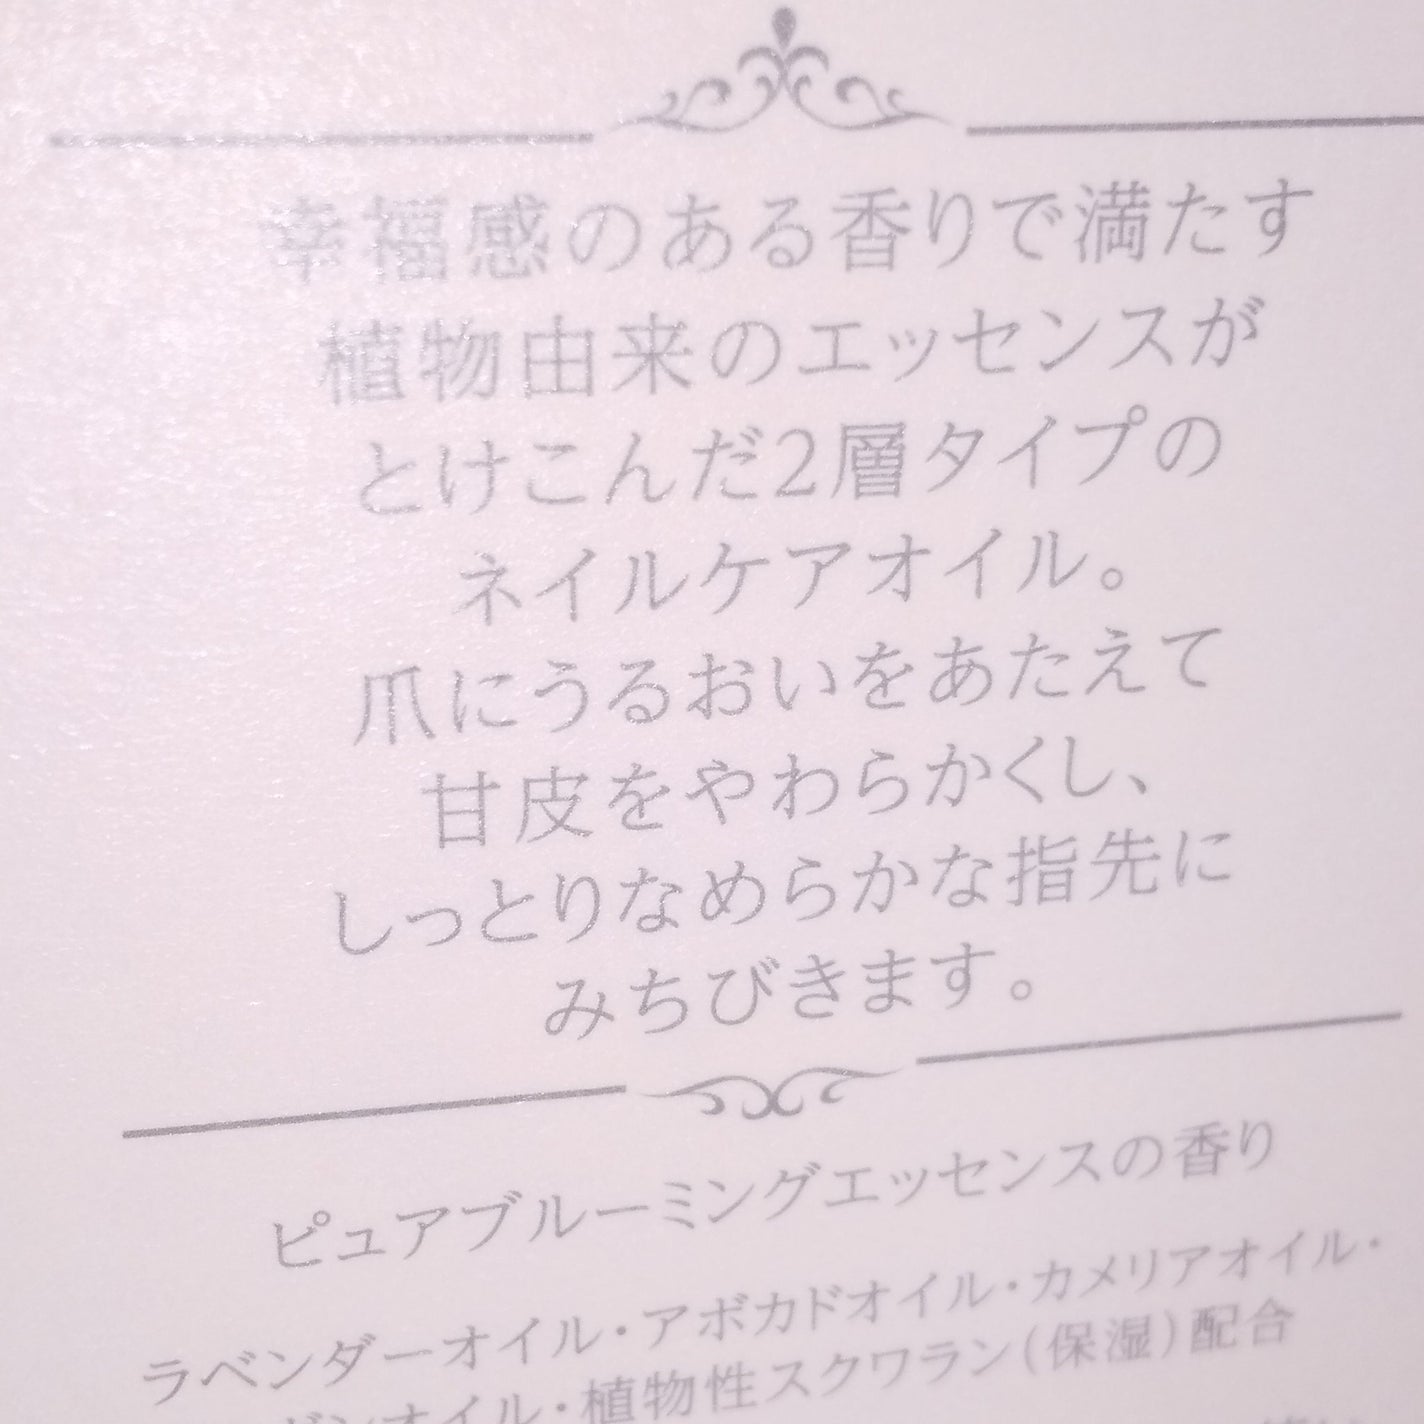 幸福感のある香りで満たす
植物由来のエッセンスが
とけこんだ2層タイプの
ネイルケアオイル。
爪にうるおいをあたえて
甘皮をやわらかくし、
しっとりなめらかな指先に
みちびきます。
ピュアブルーミングエッセンスの香り
ラベンダーオイル・アボカドオイル・カメリアオイル・
オイル・植物性スクワラン(保湿)配合